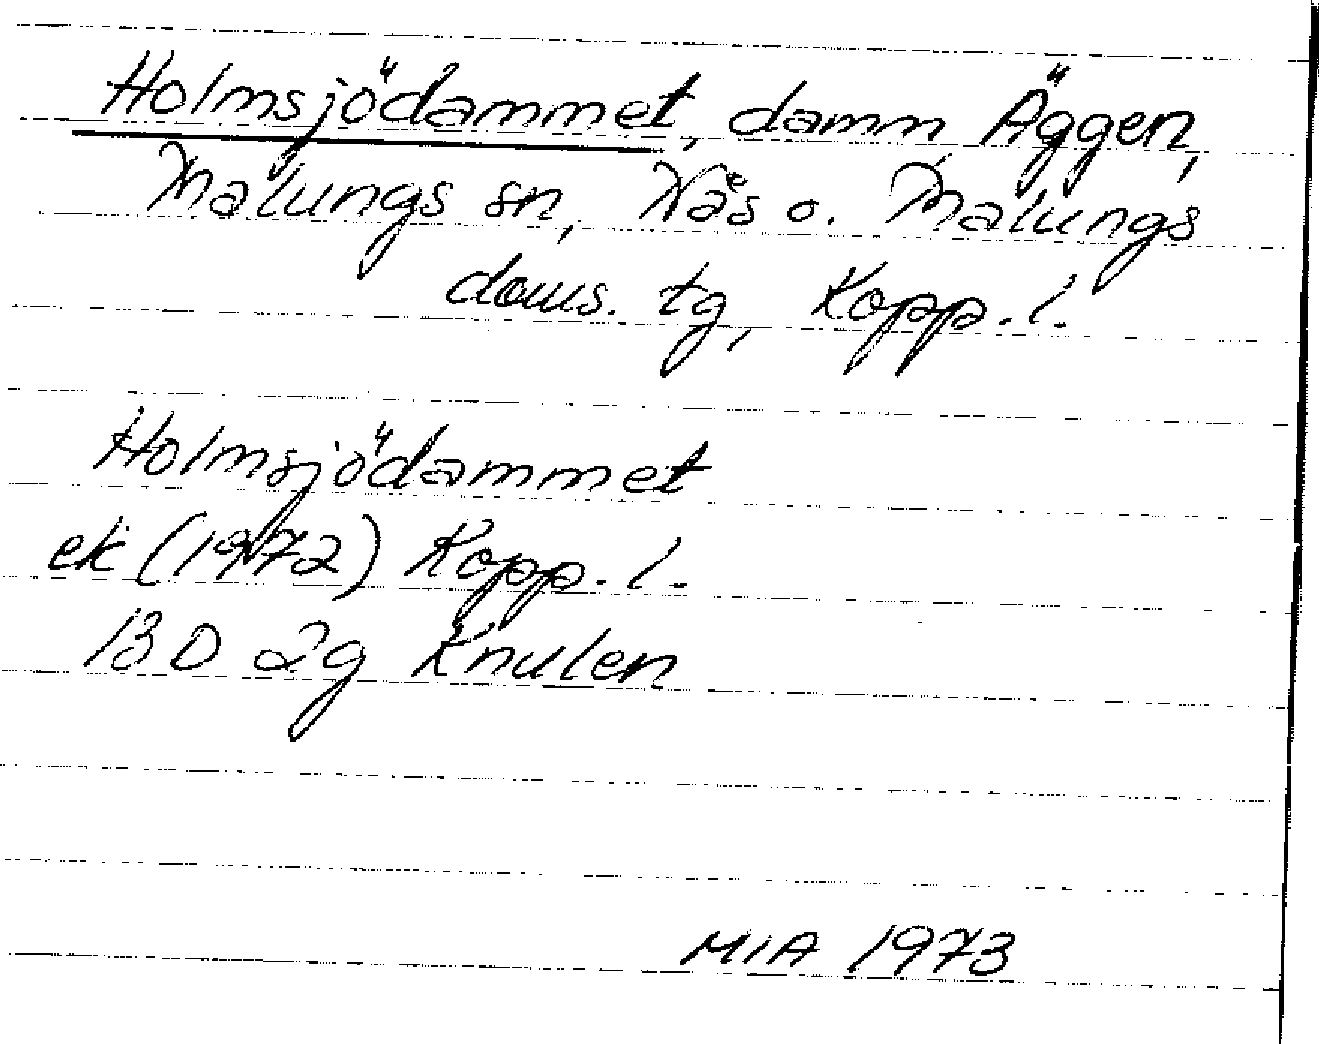 Holmsjödammet, damm Äggen,
Malungs sn, Nås o. Malungs
doms. tg, Kopp. l.
Holmsjödammet
ek (1972) Kopp. l.
13 D 2g Knulen
MIA 1973